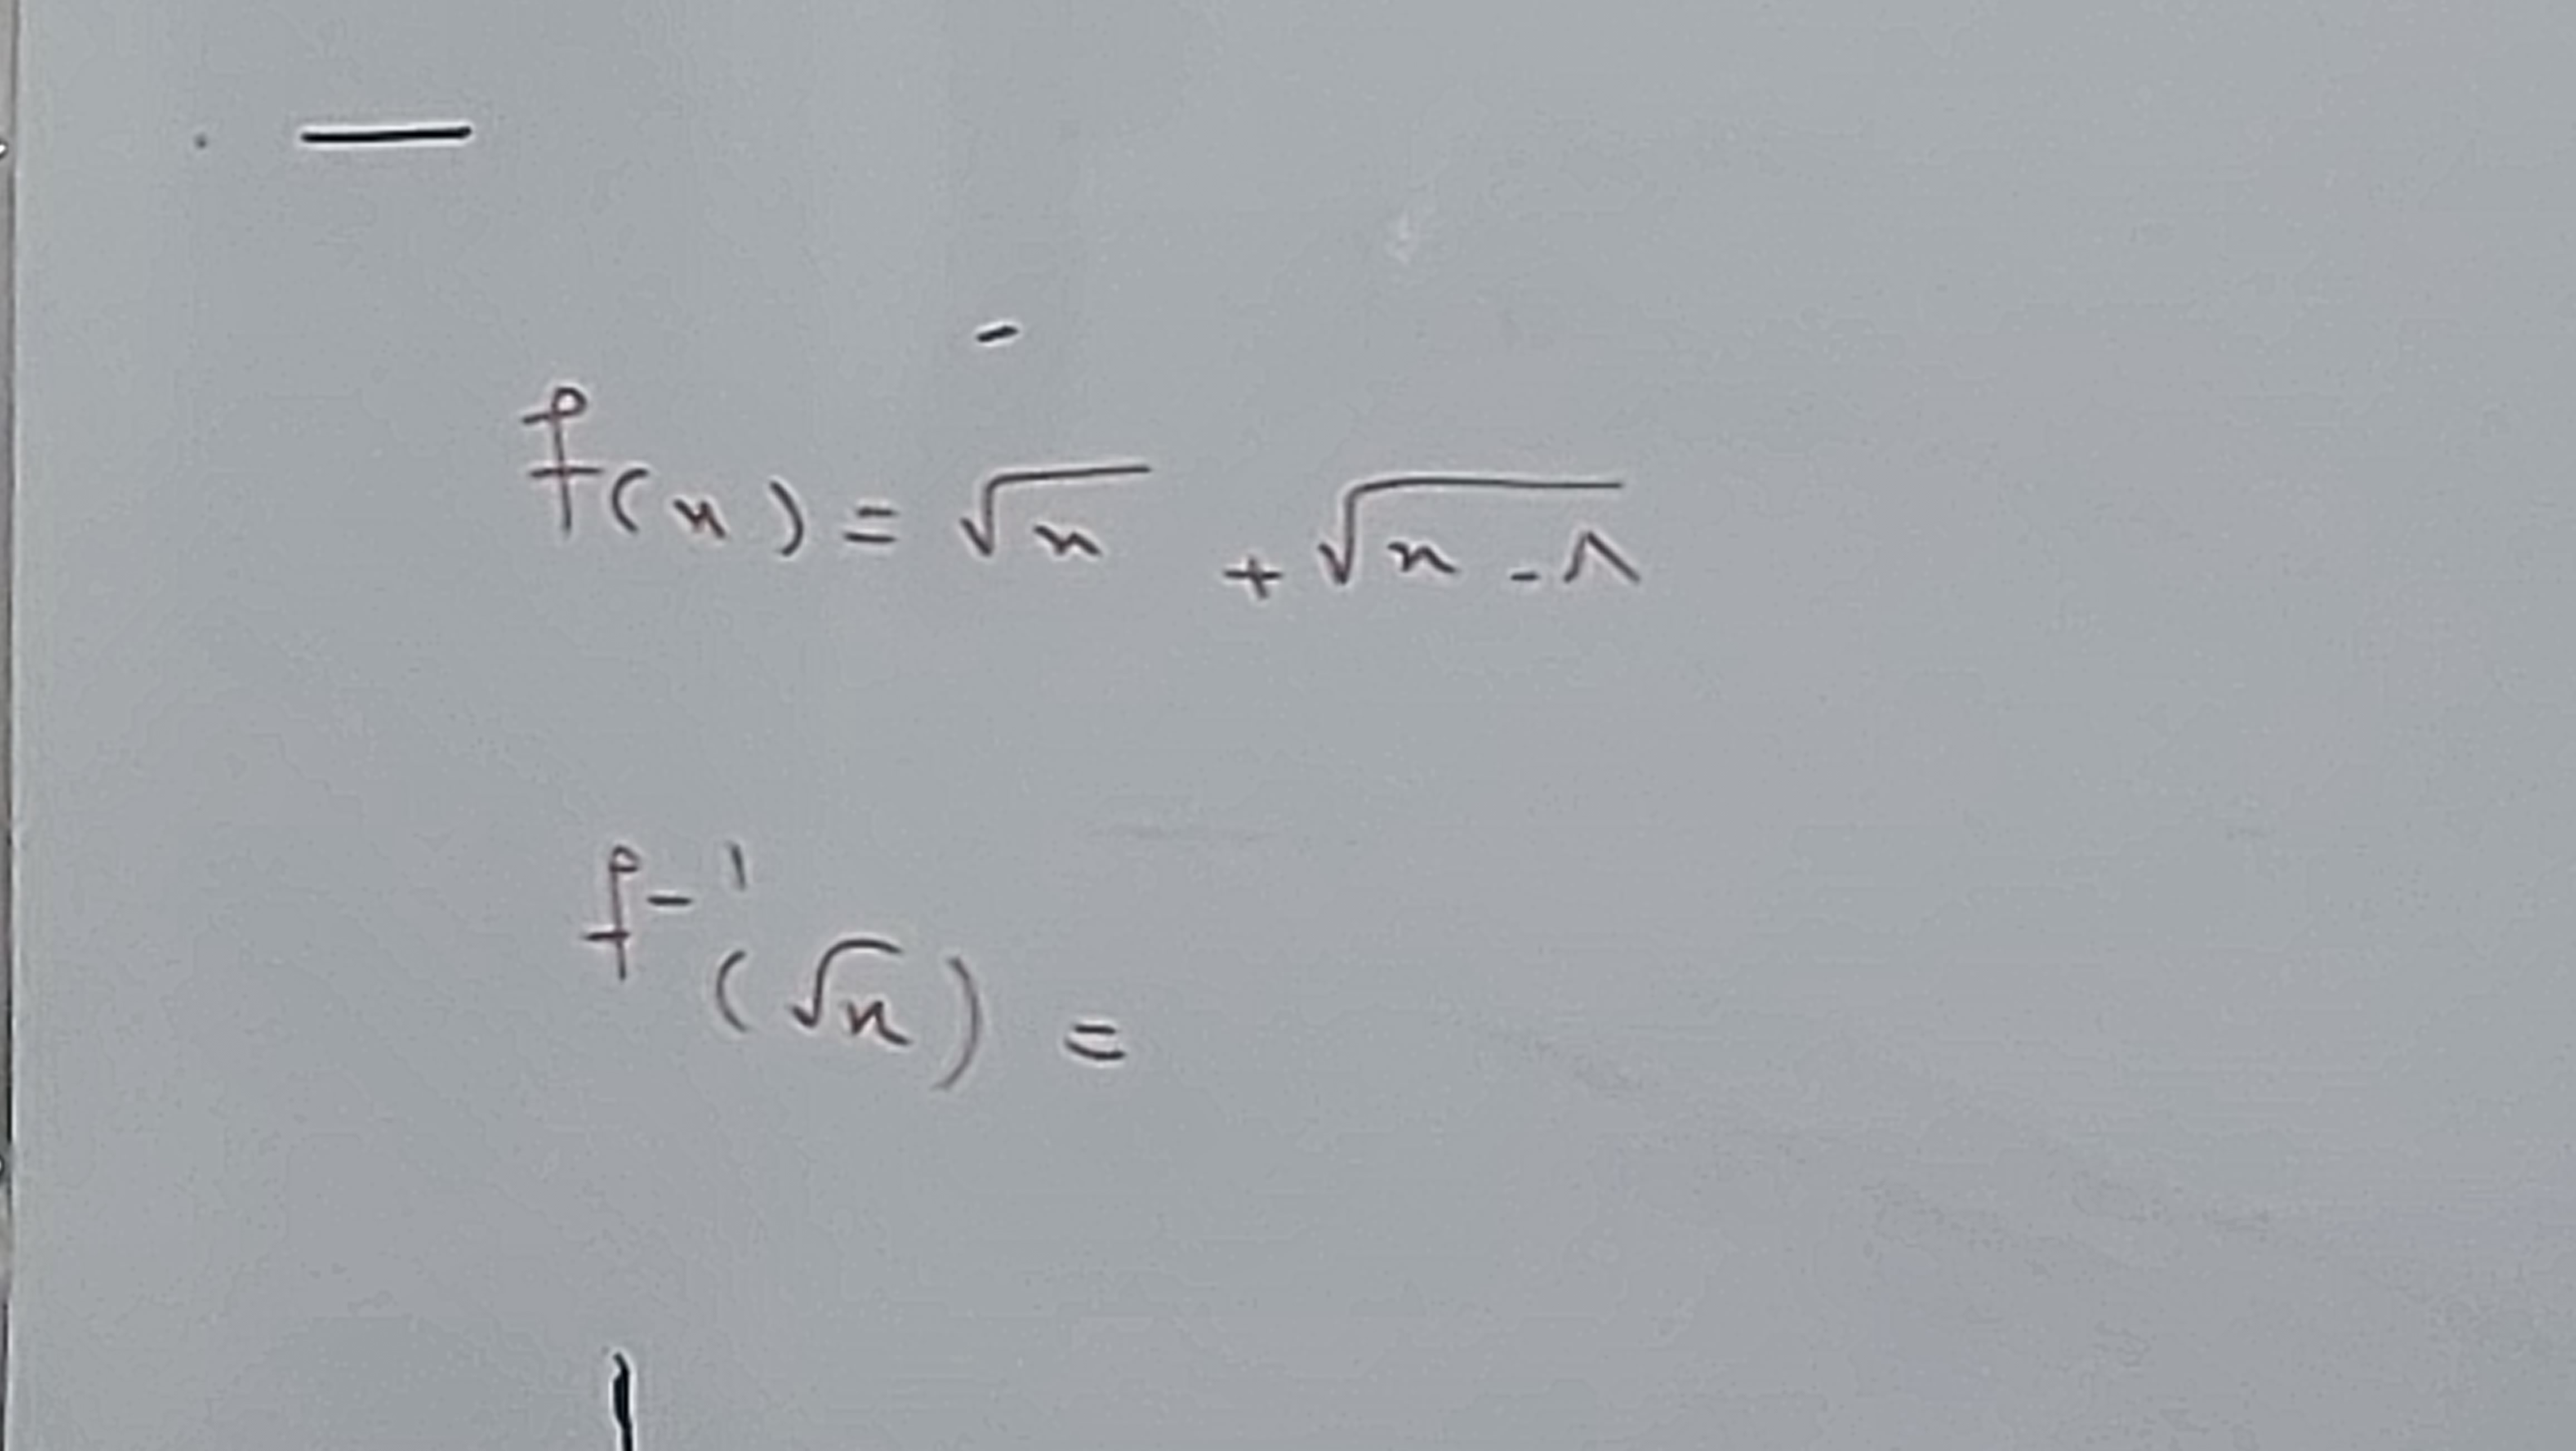 f(x) = √x + √x - ۸
f-۱(√x) =